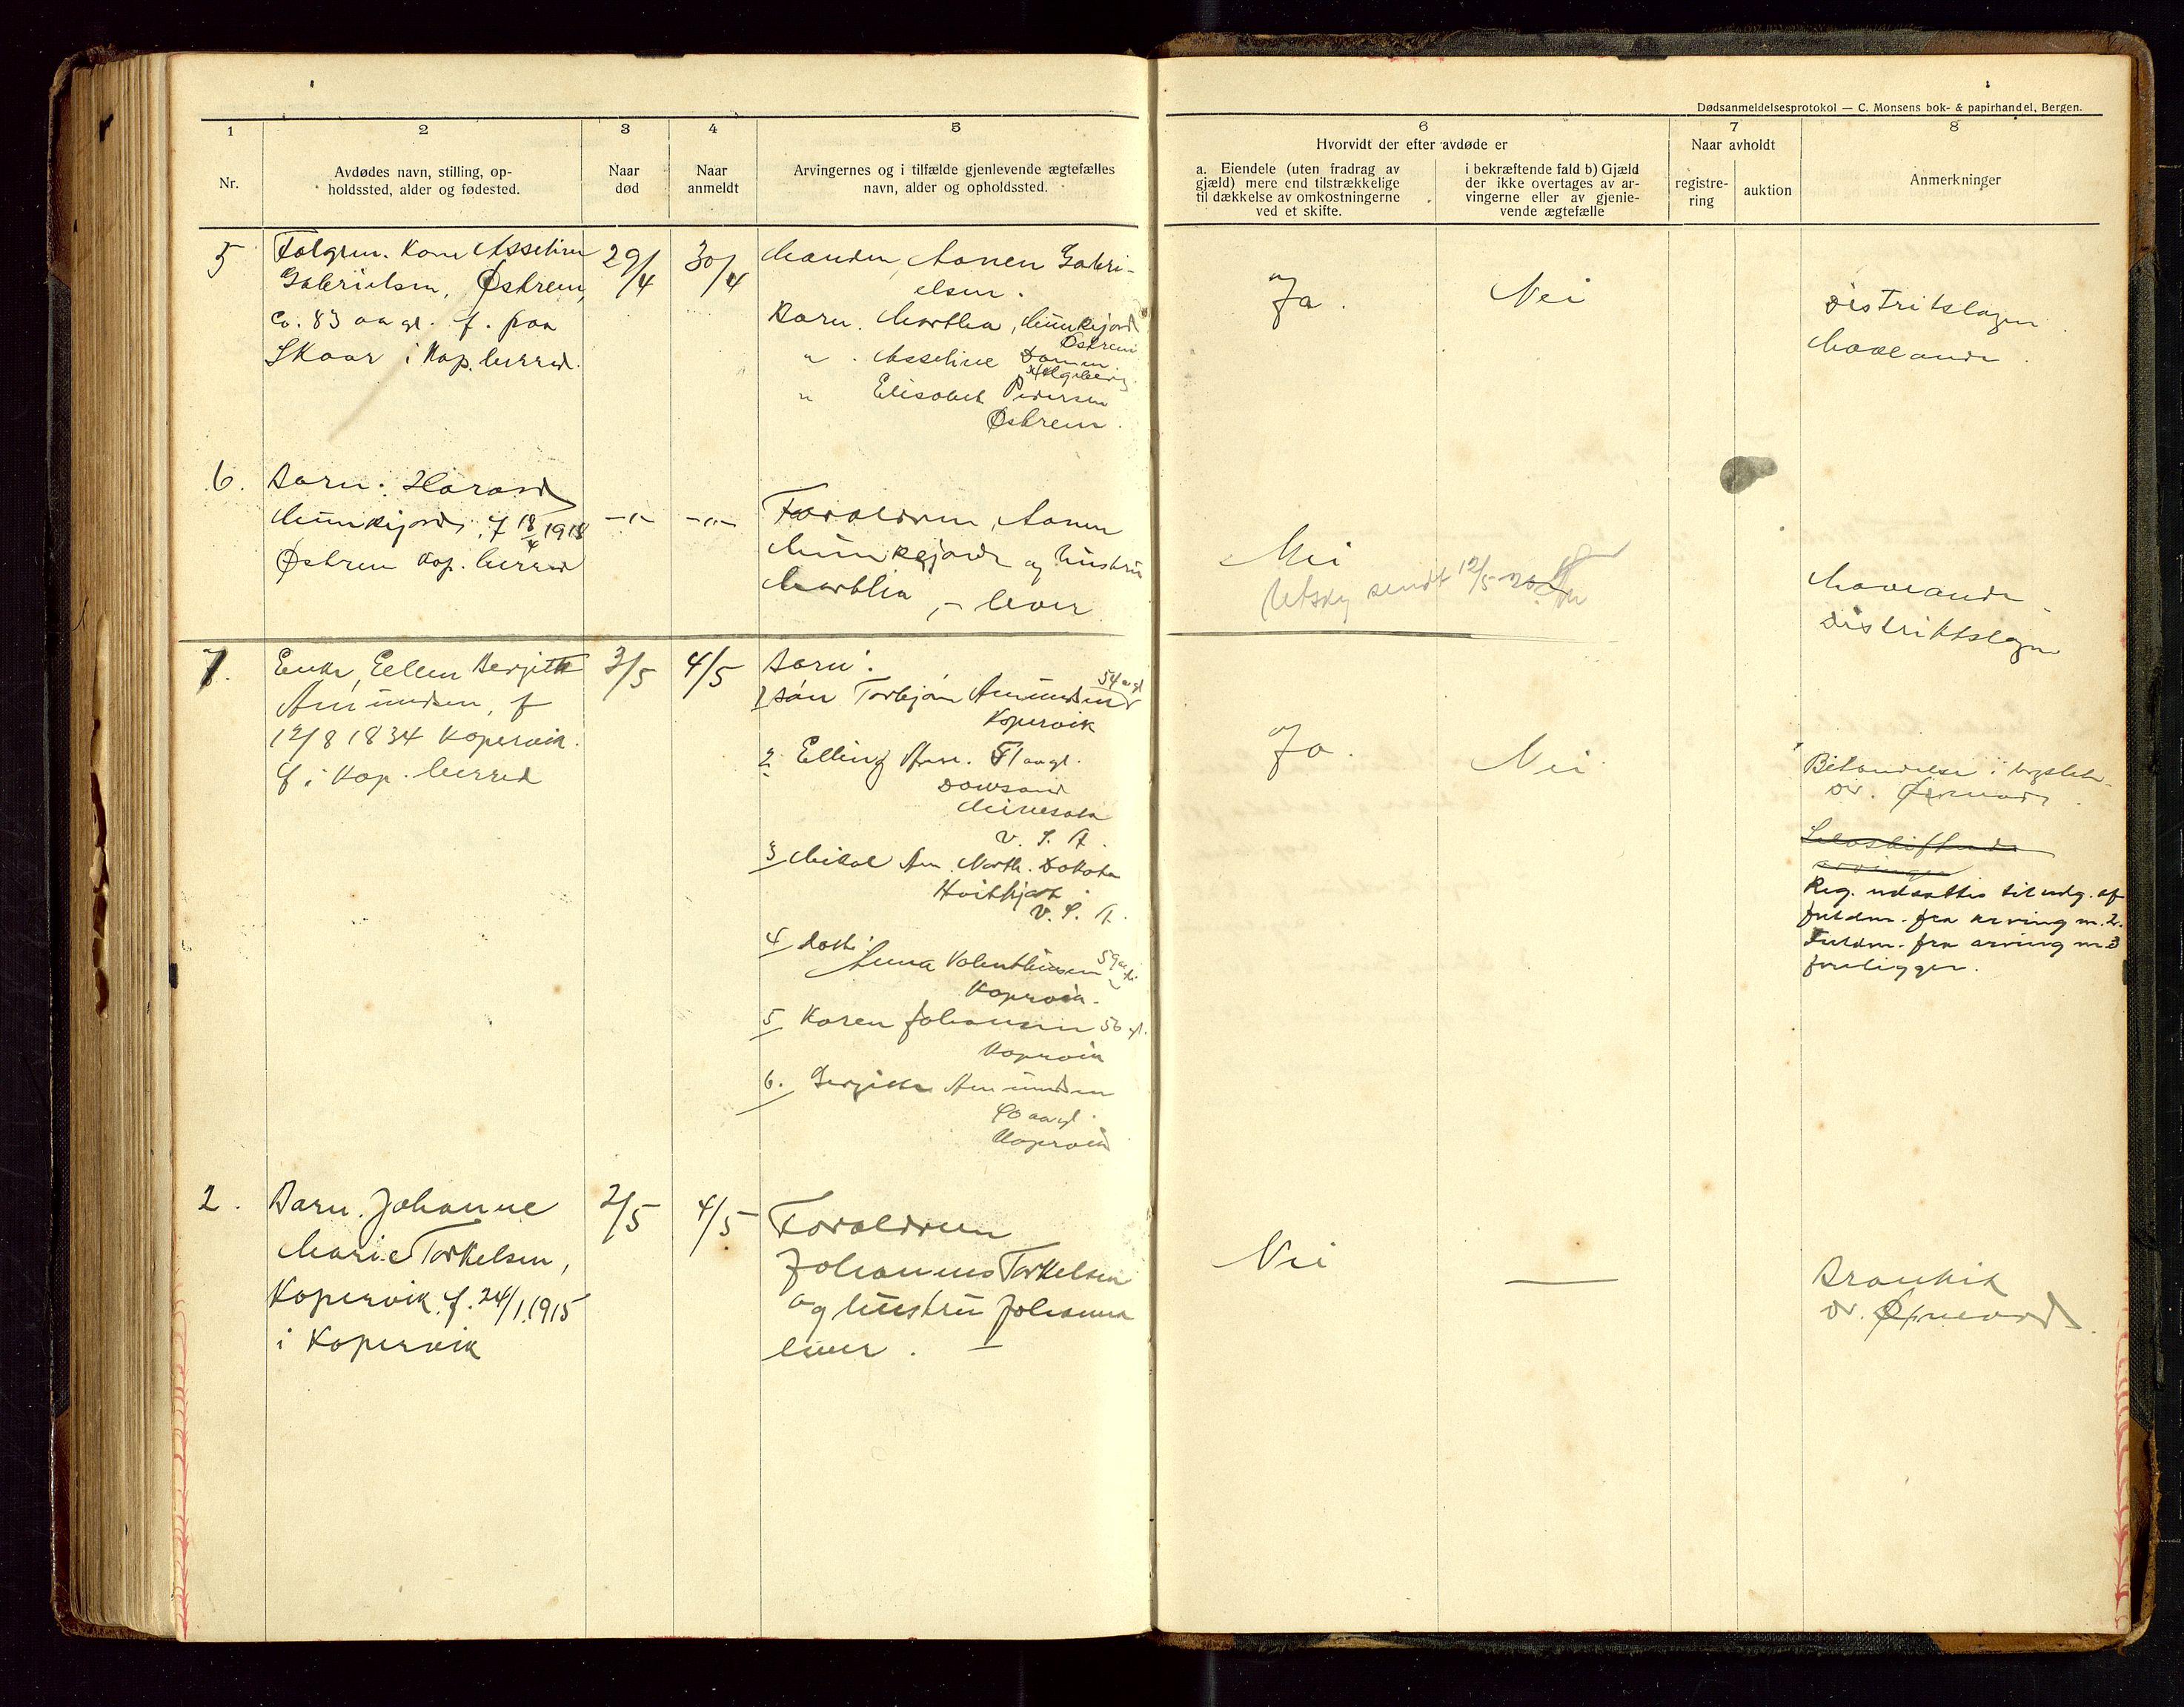 Dødsanmeldelsesprotokol — C. Monsens bok- & papirhandel, Bergen.
1
2
3
4
5
6
7
8
Nr.
Avdødes navn, stilling, op-
holdssted, alder og fødested.
Naar
død
Naar
anmeldt
Arvingernes og i tilfælde gjenlevende ægtefælles
navn, alder og opholdssted.
Hvorvidt der efter avdøde er
a. Eiendele (uten fradrag av
gjæld) mere end tilstrækkelige
til dækkelse av omkostningerne
ved et skifte.
i bekræftende fald b) Gjæld
der ikke overtages av ar-
vingerne eller av gjenle-
vende ægtefælle
Naar avholdt
registre-
ring
auktion
Anmerkninger
5
Kone Asseline
Gabrielsen, Østrem,
Ca. 83 aa gl. f. paa
Skaar i Kop. herred.
29/4
30/4
Manden, Aanen Gabri-
elsen.
Barn. Martha, Munkejord
Østrem
" . Asseline
" Elisabet Pedersen
Østrem.
Ja.
Nei
Distriktslægen
6.
Barn. Harald
Munkejord, f 18/4 1918
Østrem Kop. herred
-"-
-"-
Foraldrene, Aanen
Munkejord og hustru
Martha, - lever
Nei
Utskr sendt 12/5
Distriktslægen
7.
Enke, Ellen Bergitte
Amundsen, f
12/8 1834 Kopervik.
f i Kop. herred
3/5
4/5
Barn:
1 Søn Torbjørn Amundsen 54 a gl
Kopervik
2 Elling Am. 51 aa gl.
Dowsand
Minesota
U. S. A.
3 Mikal Am. North. Dakota
U. S. A.
4 Datt:
Anna Valentinsen 59 aa
Kopervik.
5 Karen Johansen 56 gl.
Kopervik
6. Bergitte Amundsen
40 aa gl.
Kopervik
Ja.
Nei
Selvskiftende
arvinger
Reg. udsattes til udg. af
fuldm. fra arving nr. 2.
Fuldm. fra arving nr 3
foreligger.
2.
Barn. Johanne
Marie Torkelsen,
Kopervik. f. 24/1 1915
i Kopervik
2/5
4/5
Foraldrene
Johannes Torkelsen
og hustru Johanna
lever. —
Nei
—
Bronkit
Dr.